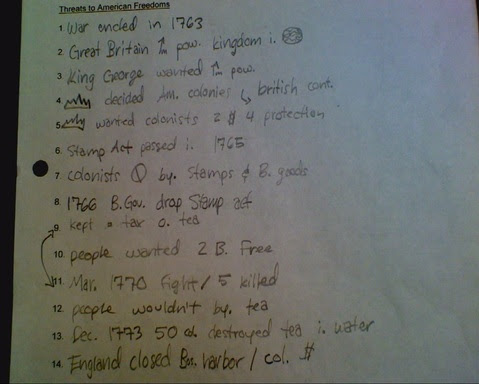 Threats to American Freedoms
1. War ended in 1763
2. Great Britain ↑ pow. kingdom i.
3. King George wanted ↑ pow.
4. decided Am. colonies ↳ british cont.
5. wanted colonists 2 $ 4 protection
6. Stamp Act passed i. 1765
7. colonists by. Stamps & B. goods
8. 1766 B. Gov. drop Stamp act
9. kept = tax o. tea
10. people wanted 2 B. Free
11. Mar. 1770 fight / 5 killed
12. people wouldn't by. tea
13. Dec. 1773 50 destroyed tea i. water
14. England closed Bos. harbor / col. $